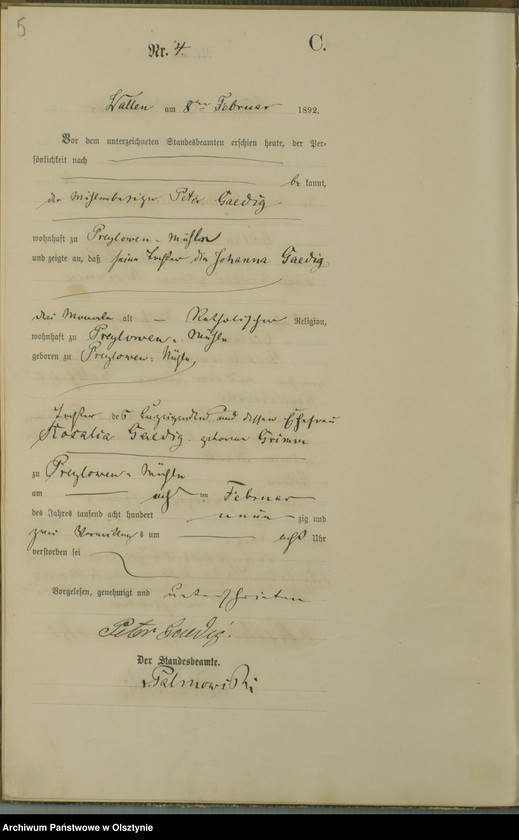 5
Nr. 4. C.
Wallen am 8ten Februar 1892.
Vor dem unterzeichneten Standesbeamten erschien heute, der Per-
sönlichkeit nach
be kannt,
der Mühlenbesitzer Peter Gaedig
wohnhaft zu Preylowen-Mühle
und zeigte an, daß seine Tochter die Johanna Gaedig
drei Monate alt Katholischer Religion,
wohnhaft zu Preylowen-Mühle
geboren zu Preylowen-Mühle,
Tochter des Anzeigenden und dessen Ehefrau
Rosalia Gaedig geborene Grimm
zu Preylowen-Mühle
am acht ten Februar
des Jahres tausend acht hundert neun zig und
zwei Vormittags um acht Uhr
verstorben sei
Vorgelesen, genehmigt und unterschrieben
Peter Gaedig.
Der Standesbeamte.
v. Palmowski
Archiwum Państwowe w Olsztynie